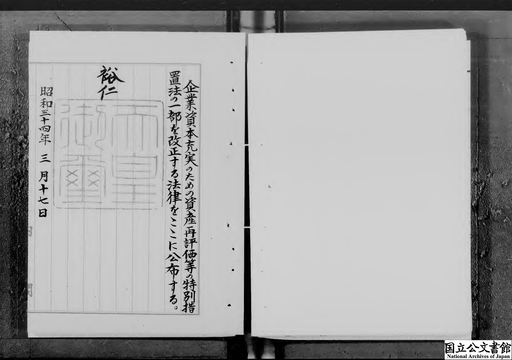 企業資本充実のための資産再評価等の特別措
置法の一部を改正する法律をここに公布する。
裕仁
天皇
御璽
昭和三十四年三月十七日
国立公文書館
National Archives of Japan